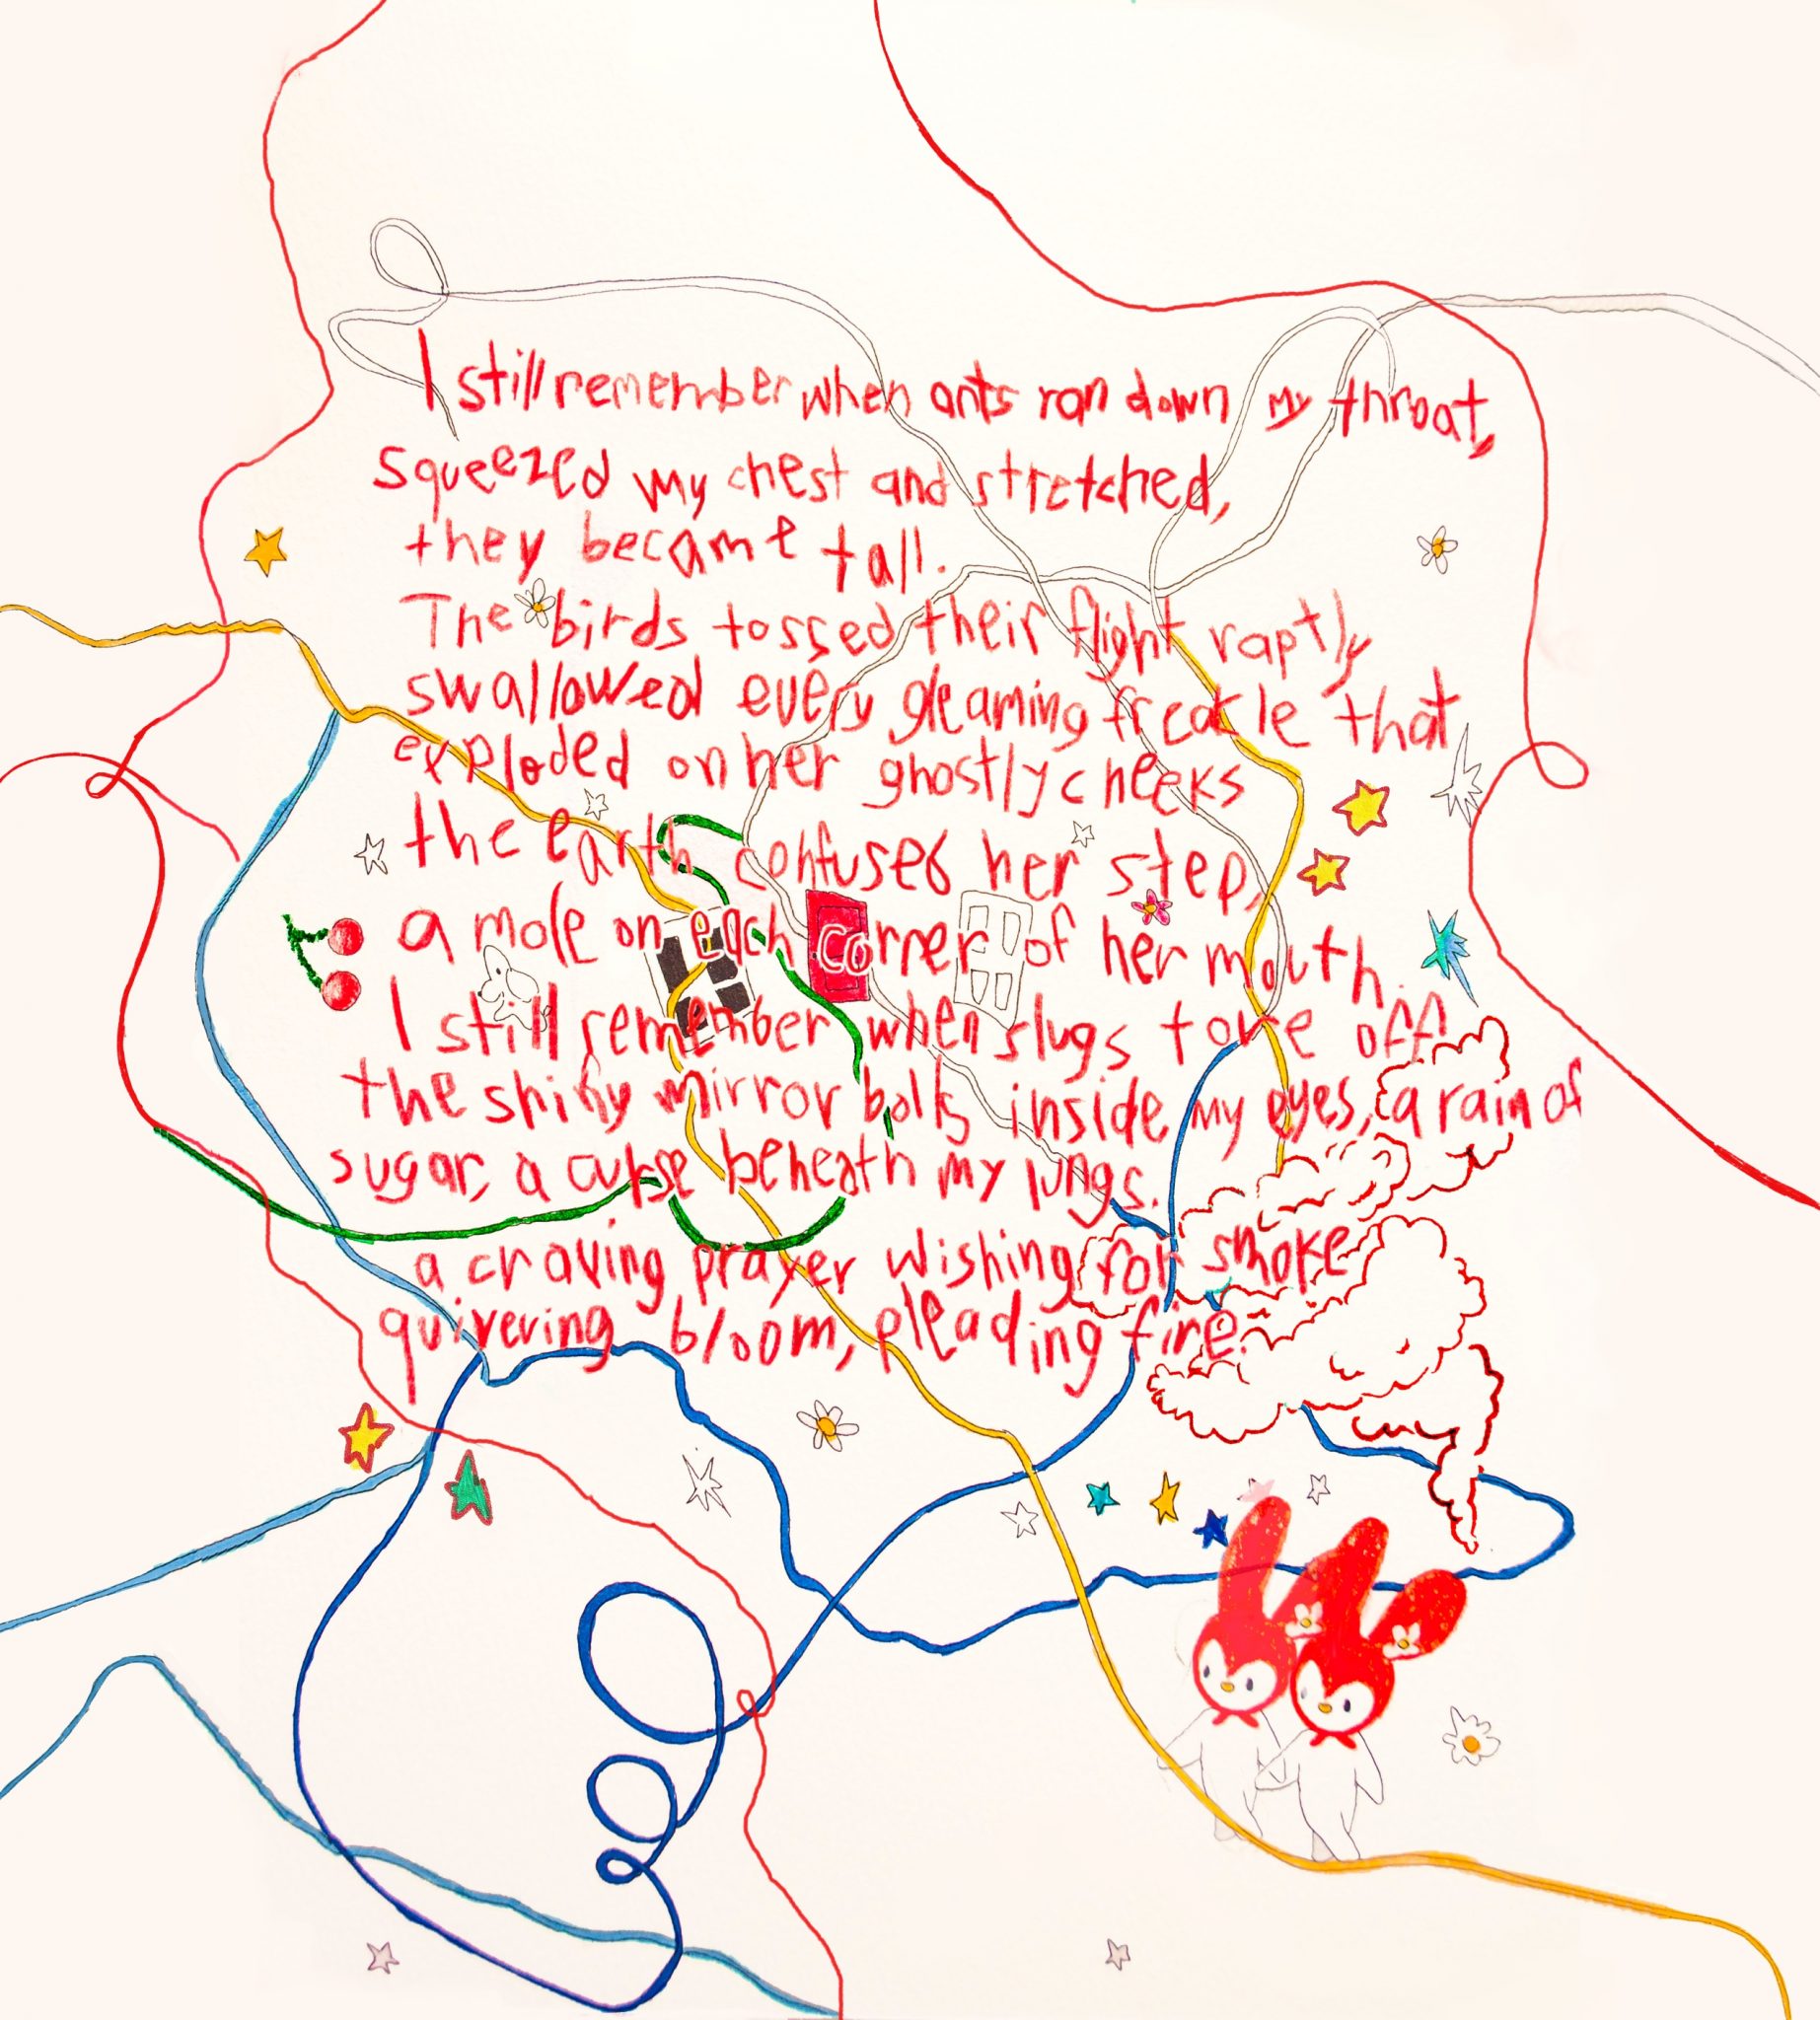 I still remember when ants ran down my throat,
squeezed my chest and stretched,
they became tall.
The birds tossed their flight raptly
swallowed every gleaming freakle that
exploded on her ghostly cheeks
the earth confuses her step,
a mole on each corner of her mouth.
I still remember when slugs tore off
the shiny mirror balls inside my eyes, a rain of
sugar, a curse beneath my lungs.
a craving prayer wishing for smoke
quivering bloom, pleading fire.